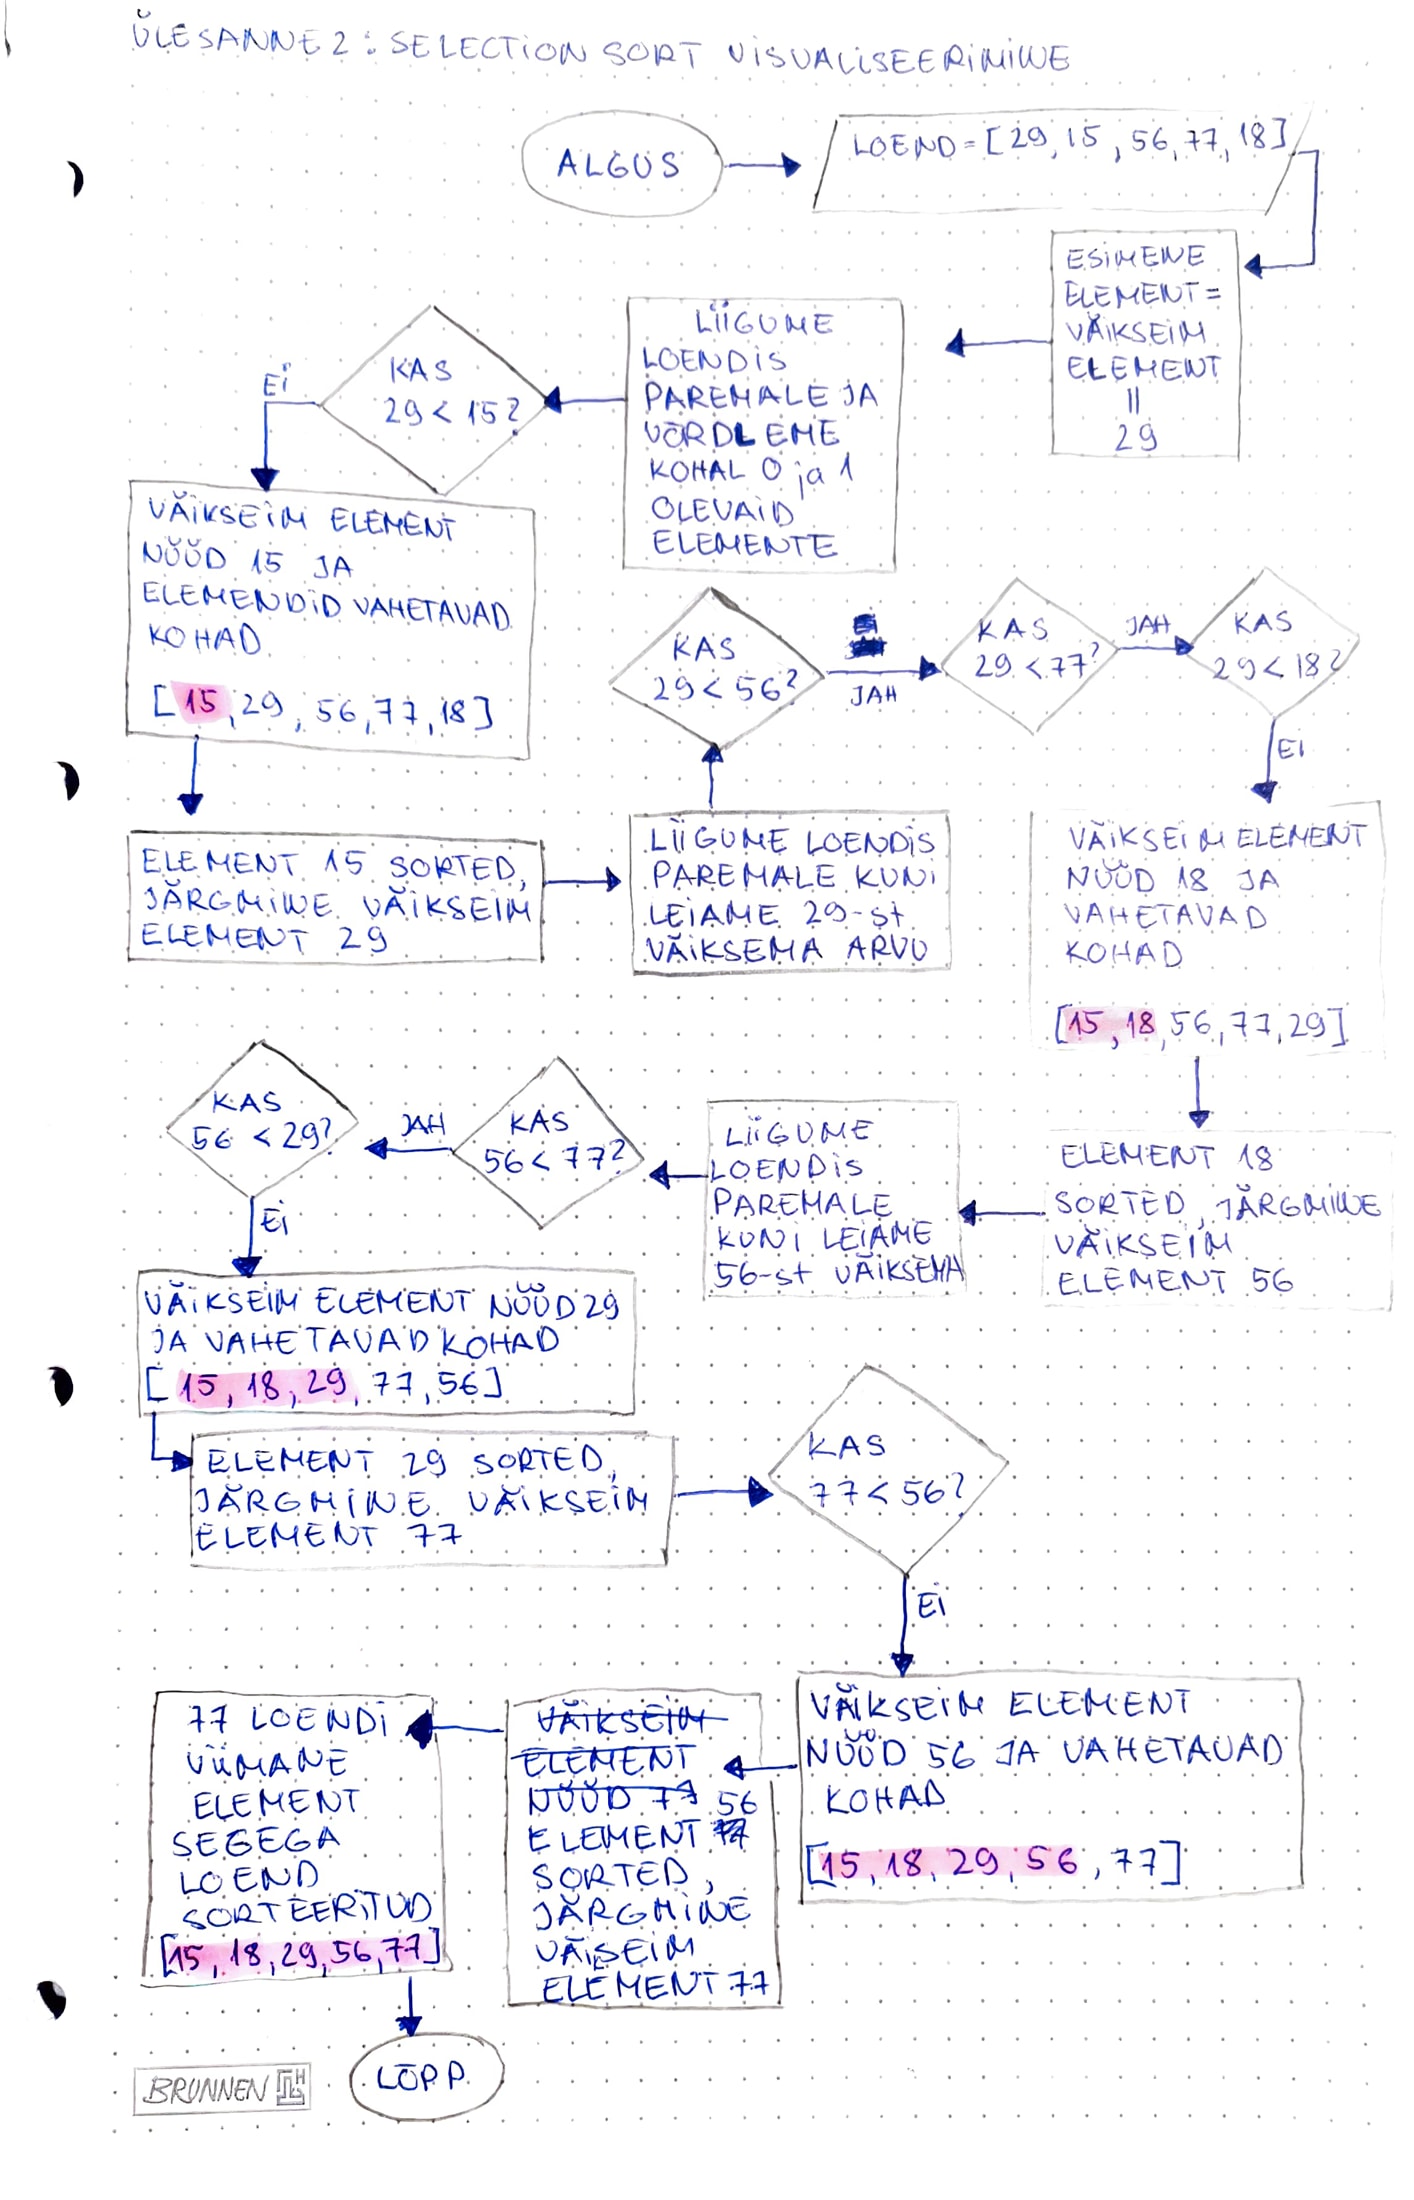 ÜLESANNE 2: SELECTION SORT VISUALISEERIMINE
ALGUS
LOEND = [29, 15, 56, 77, 18]
ESIMENE
ELEMENT =
VÄIKSEIM
ELEMENT
=
29
LIIGUME
LOENDIS
PAREMALE JA
VÕRDLEME
KOHAL 0 ja 1
OLEVAID
ELEMENTE
KAS
29 < 15?
Ei
VÄIKSEIM ELEMENT
NÜÜD 15 JA
ELEMENDID VAHETAVAD
KOHAD
[15, 29, 56, 77, 18]
ELEMENT 15 SORTED,
JÄRGMINE VÄIKSEIM
ELEMENT 29
LIIGUME LOENDIS
PAREMALE KUNI
LEIAME 29-st
VÄIKSEMA ARVU
KAS
29 < 56?
JAH
KAS
29 < 77?
JAH
KAS
29 < 18?
Ei
VÄIKSEIM ELEMENT
NÜÜD 18 JA
VAHETAVAD
KOHAD
[15, 18, 56, 77, 29]
ELEMENT 18
SORTED, JÄRGMINE
VÄIKSEIM
ELEMENT 56
LIIGUME
LOENDIS
PAREMALE
KUNI LEIAME
56-st VÄIKSEMA
KAS
56 < 77?
JAH
KAS
56 < 29?
Ei
VÄIKSEIM ELEMENT NÜÜD 29
JA VAHETAVAD KOHAD
[15, 18, 29, 77, 56]
ELEMENT 29 SORTED,
JÄRGMINE VÄIKSEIM
ELEMENT 77
KAS
77 < 56?
Ei
VÄIKSEIM ELEMENT
NÜÜD 56 JA VAHETAVAD
KOHAD
[15, 18, 29, 56, 77]
VÄIKSEIM
ELEMENT
NÜÜD 77 56
ELEMENT
SORTED,
JÄRGMINE
VÄISEIM
ELEMENT 77
77 LOENDI
VIIMANE
ELEMENT
SEGEGA
LOEND
SORTEERITUD
[15, 18, 29, 56, 77]
LÕPP
BRUNNEN